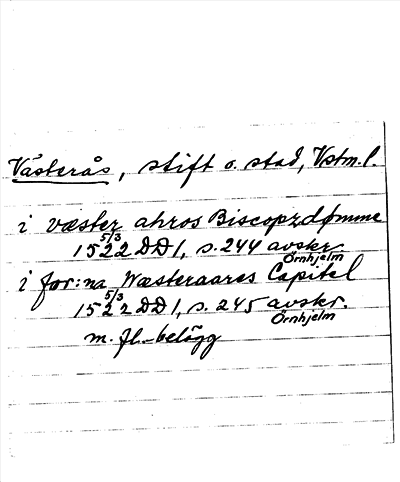 Västerås, stift o. stad, Vstm. l.
i væster ahros Biscopzdømme
1522 5/3 DD 1, s. 244 avskr. Örnhjelm
i for:na Wæsteraares Capitel
1522 5/3 DD 1, s. 245 avskr. Örnhjelm
m. fl. belägg